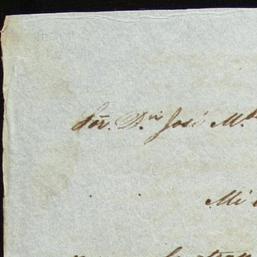 Sor. Dn. José M.
Mi